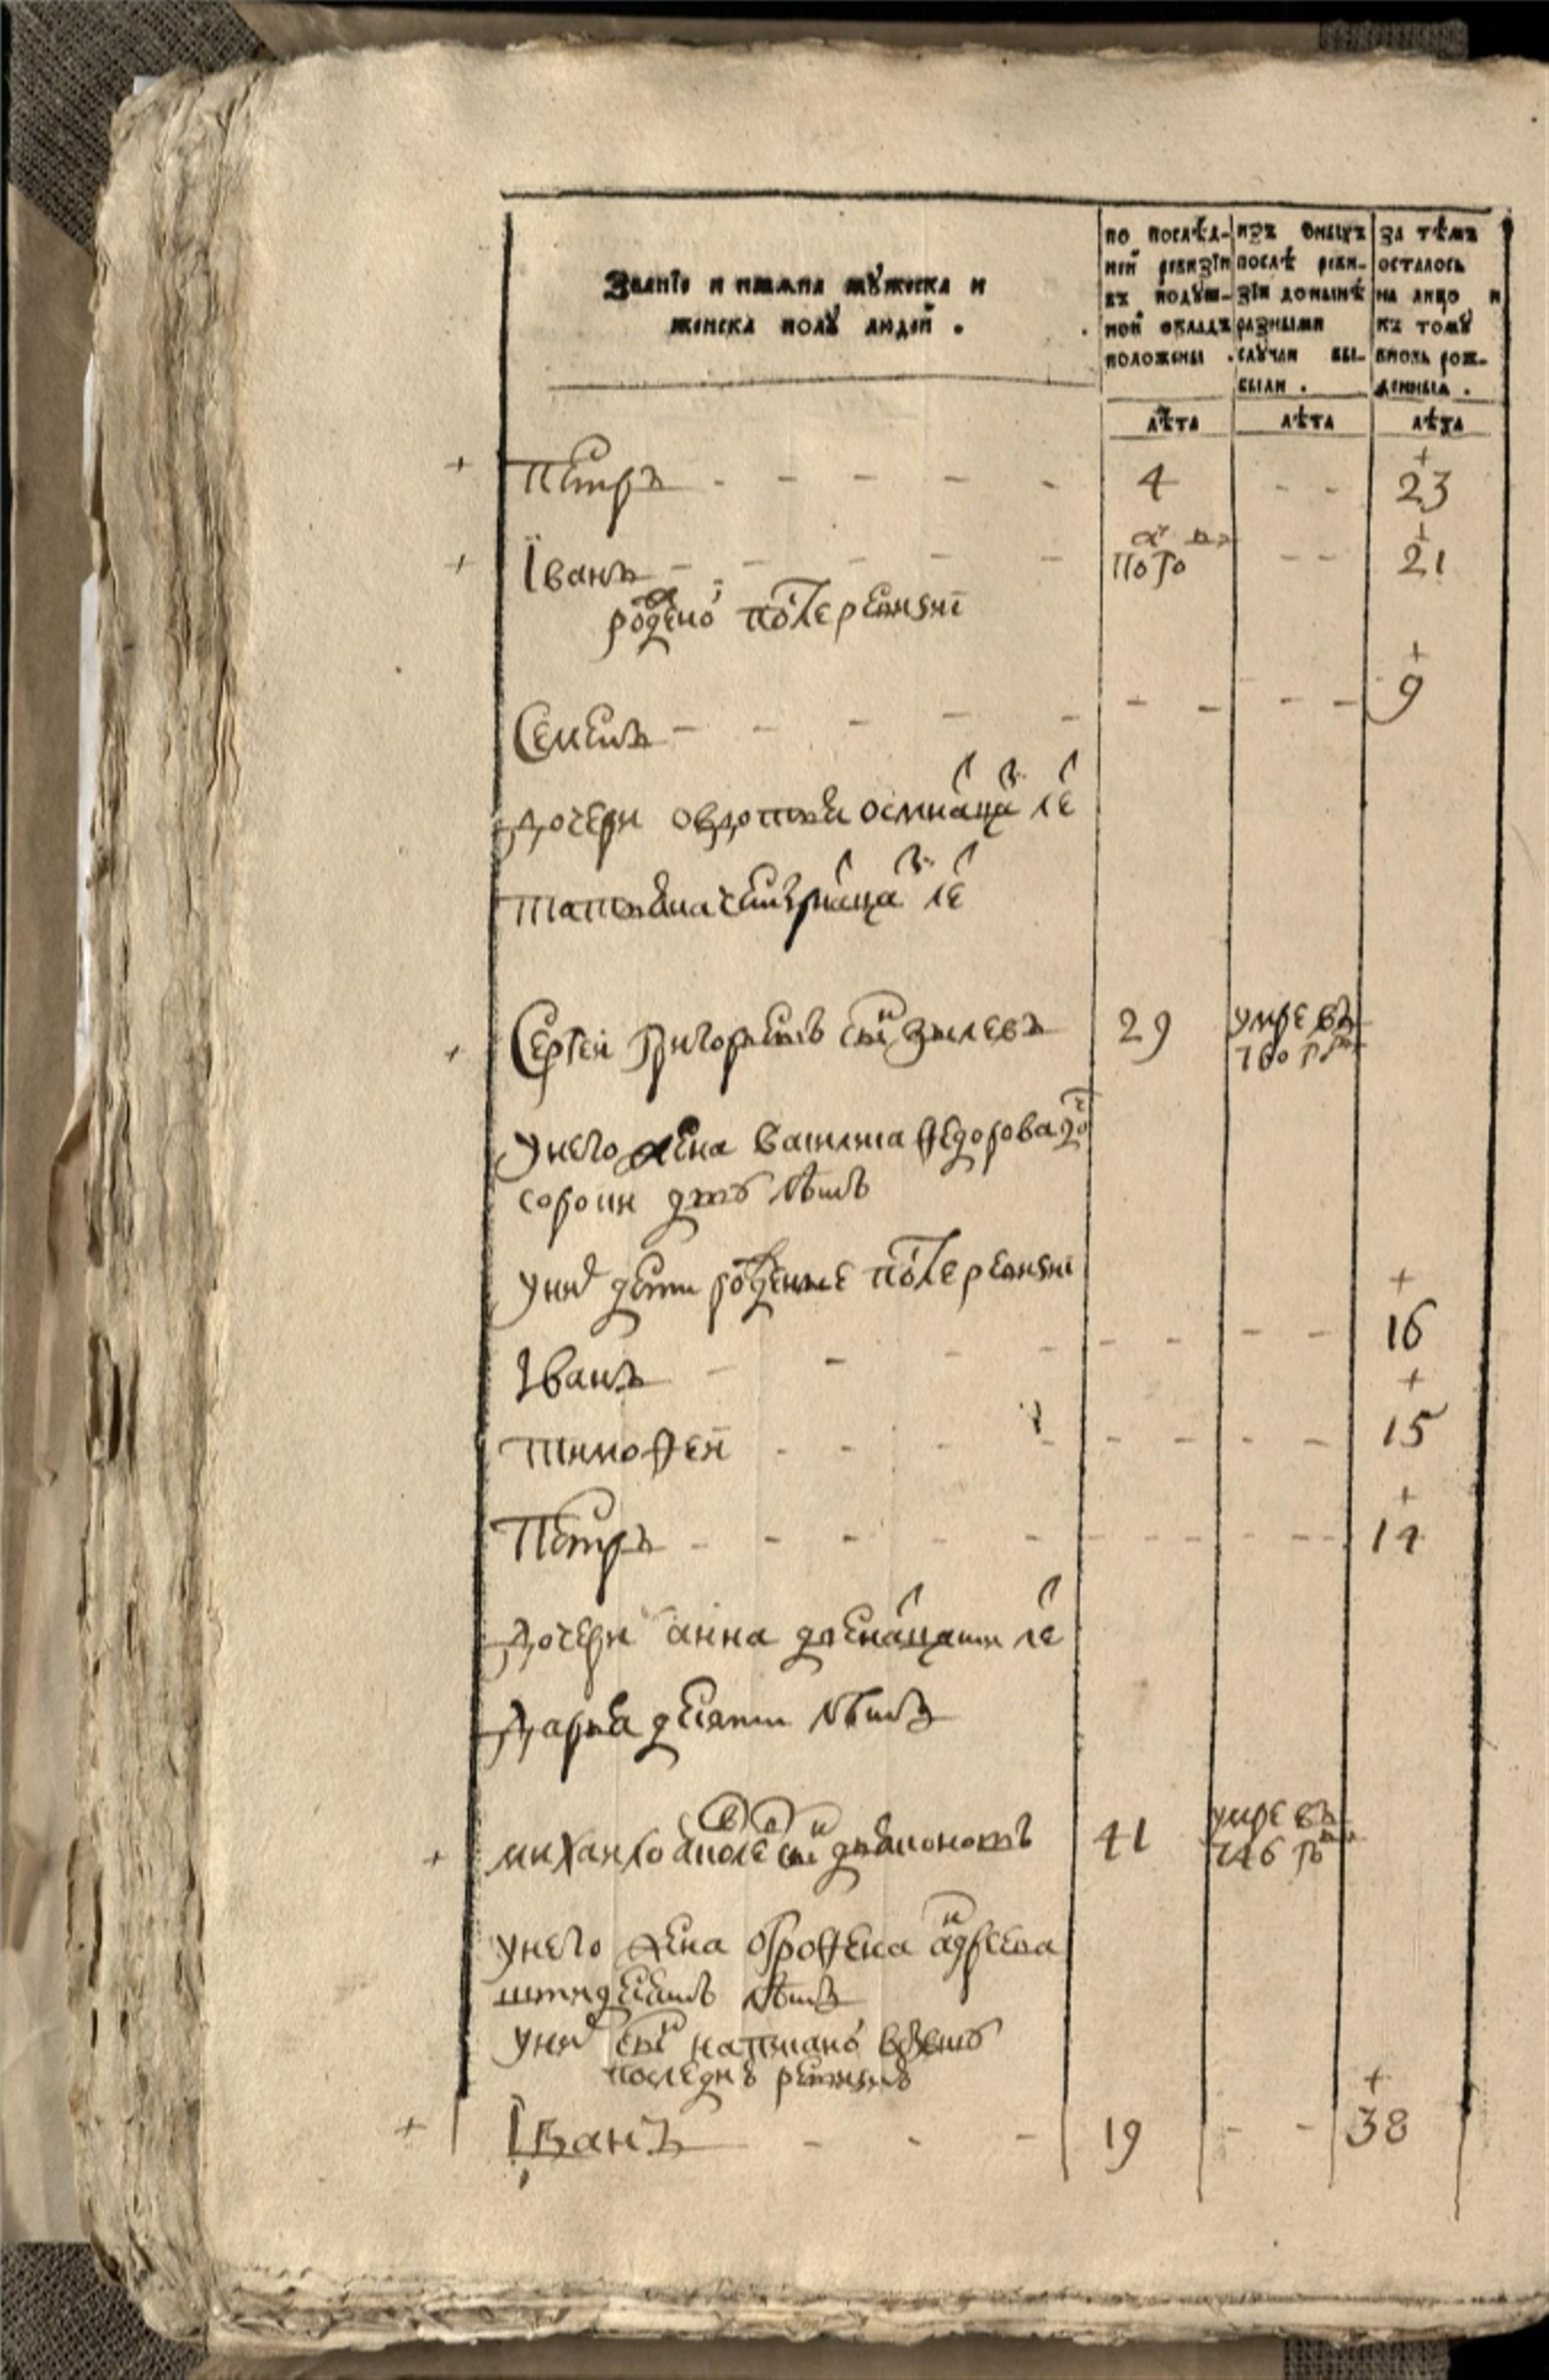 Званїе и имяна мꙋжеска и
женска полꙋ людей .
по послѣд-
ней ревизїи
въ подꙋш-
ной окладъ
положены .
изъ оныхъ
послѣ реви-
зїи донынѣ
разными
слꙋчаи вы-
были .
за тѣмъ
осталось
на лицо и
къ томꙋ
вновь рож-
денныя .
лѣта лѣта лѣта
+ Петръ - - - - - 4 - - + 23
+ Їванъ - - - - - - - + 21
рожено после ревизиї
Семенъ - - - - - - - - - + 9
дочери овдотья осмнацать летъ
татьяна четырнацать летъ
+ Сергеи Григорьевъ сынъ 29 умре въ
760 году
у него жена Федорова дочь
сорони дву лѣтъ
у ниⷯ дети роженые после ревизиї
Іванъ - - - - - - - - + 16
тимофеи - - - - - - - - + 15
Петръ - - - - - - - - - + 14
дочери анна двенацати летъ
дарья десяти лѣтъ
+ михаило сынъ 41 умре въ
746 году
у него жена офрофена андреева
лѣтъ
у ниⷯ сынъ написаной
последнеи ревизиї
+ Їванъ - - - 19 - - + 38